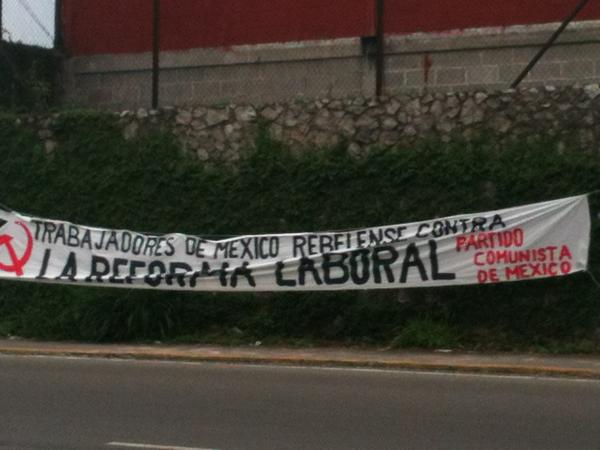 TRABAJADORES DE MEXICO REBELENSE CONTRA
LA REFORMA LABORAL
PARTIDO
COMUNISTA
DE MEXICO